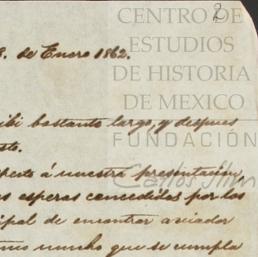 2
CENTRO DE
ESTUDIOS
DE HISTORIA
DE MEXICO
FUNDACIÓN
Carlos Slim
8. de Enero 1862.
ibi bastante largo, y despues
sto.
pecto á nuestra presentacion,
as esperas concedidas por los
ipal de encontrar aviador
mos mucho que se cumpla